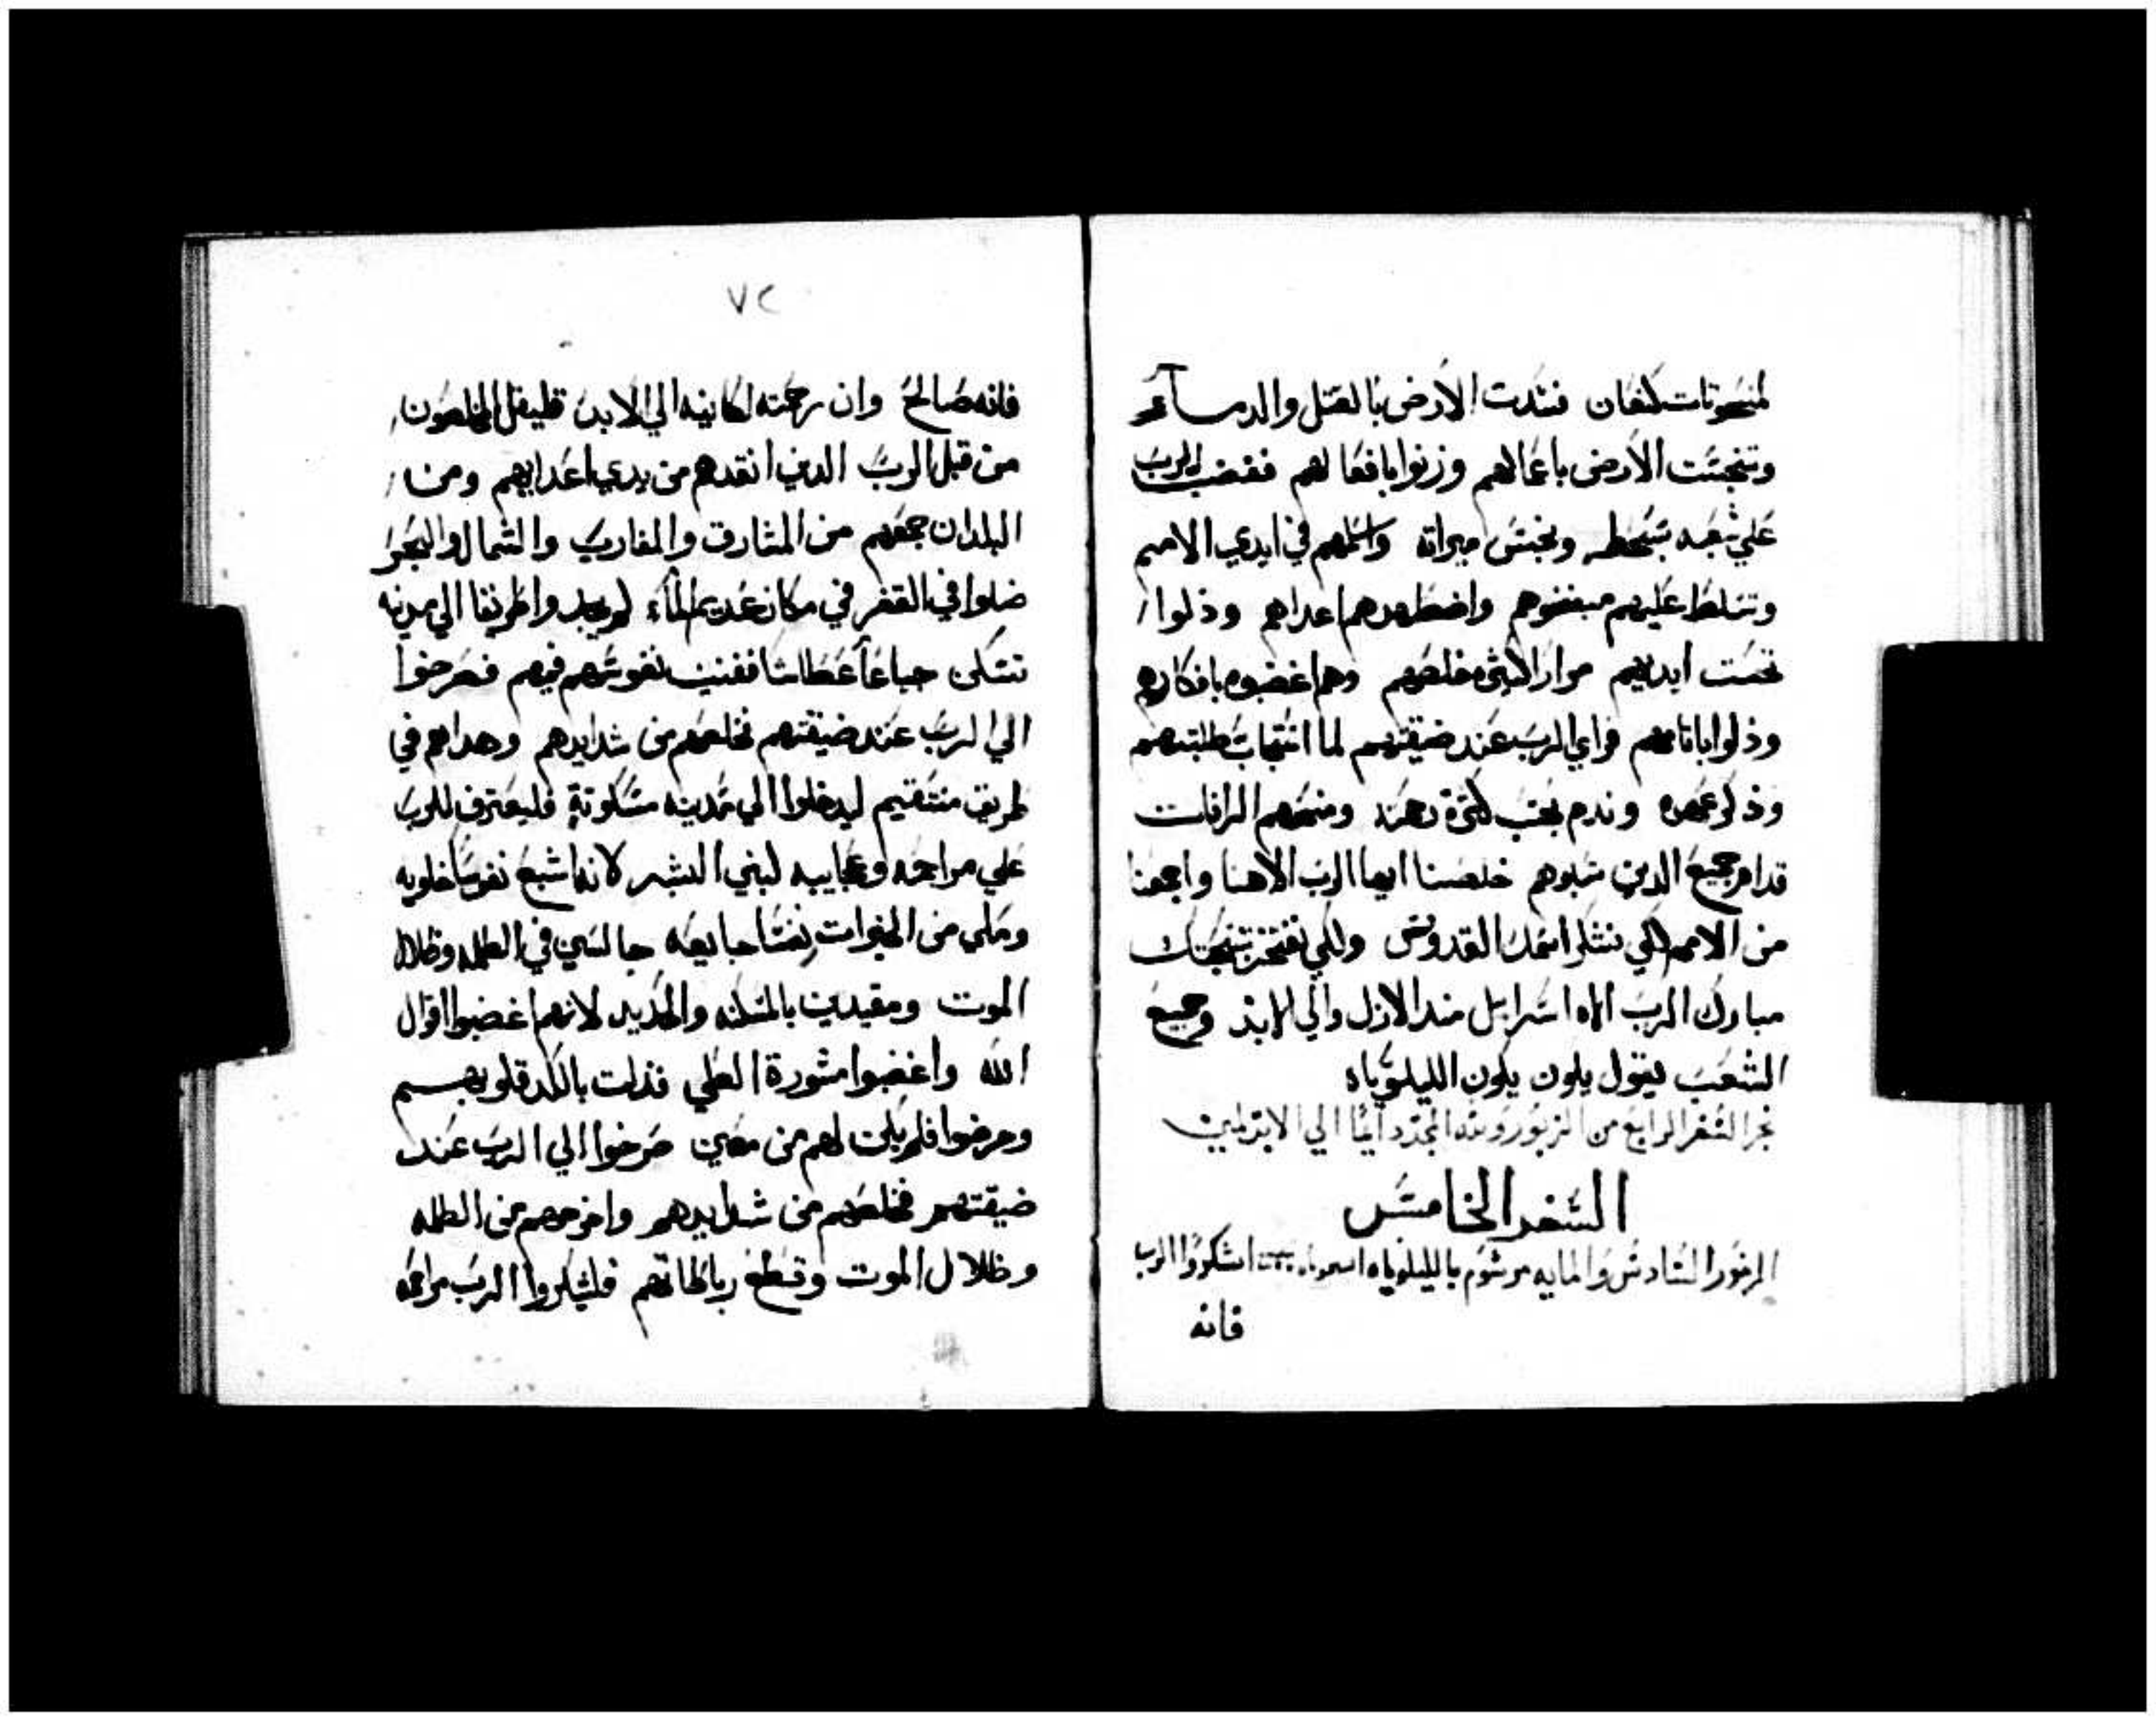 لمنحوتات كنعان فسدت الارض بالقتل والدماء
وتنجست الارض باعمالهم وزنوا بافعالهم فغضب الرب
علي شعبه بسخط ونجس ميراته واسلمهم في ايدي الامم
وتسلط عليهم مبغضوهم واضطهدهم اعداهم وذلوا
تحت ايديهم مرارا كتيره خلصهم وهم اغضبوه بافكارهم
وذلوا باتامهم فراي الرب عند ضيقتهم لما استجاب طلبتهم
وذكر عهده وندم بحسب كترة رحمته ومنحهم الرافات
قدام جميع الدين سبوهم خلصنا ايها الرب الاهنا واجمعنا
من الامم لكي نشكر اسمك القدوس ولكي نفتخر بتسبحتك
مبارك الرب اله اسرايل مند الازل والي الابد وجميع
الشعب يقول يكون يكون الليلوياه
نجز السفر الرابع من الزبور ولله المجد دايما الي الابد امين
السفر الخامس
المزمور السادس والمايه مرسوم بالليلوياه اشكروا الرب
فانه
٧٢
فانه صالح وان رحمته كاينه الي الابد فليقل المخلصون
من قبل الرب الدين انقدهم من يدي اعدايهم ومن
البلدان جمعهم من المشارق والمغارب والشمال والبحر
ضلوا في القفر في مكان عديم الماء لم يجدوا طريقا الي مدينه
تسكن جياعا عطاشا ففنيت نفوسهم فيهم فصرخوا
الي الرب عند ضيقتهم فخلصهم من شدايدهم وهداهم في
طريق مستقيم ليدخلوا الي مدينه مسكونة فليعترف للرب
علي مراحمه وعجايبه لبني البشر لانه اشبع نفوسا خاويه
وملي من الخيرات نفسا جايعه جالسين في الظلمه وظلال
الموت ومقيدين بالمسكنه والحديد لانهم اغضبوا اقوال
الله واغضبوا مشورة العلي فذلت بالكد قلوبهم
ومرضوا فلم يكن لهم من معين صرخوا الي الرب عند
ضيقتهم فخلصهم من شدايدهم واخرجهم من الظلمه
وظلال الموت وقطع رباطاتهم فليشكروا الرب مراحمه